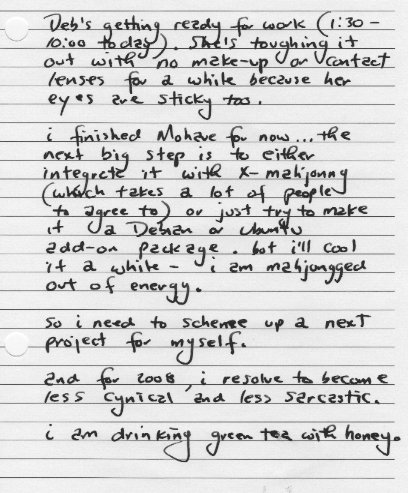 Deb's getting ready for work (1:30 –
10:00 today). She's toughing it
out with no make-up or contact
lenses for a while because her
eyes are sticky too.
i finished Mohave for now... the
next big step is to either
integrate it with X-mahjongg
(which takes a lot of people
to agree to) or just try to make
it a Debian or Ubuntu
add-on package. but i'll cool
it a while – i am mahjongged
out of energy.
so i need to scheme up a next
project for myself.
and for 2008, i resolve to become
less cynical and less sarcastic.
i am drinking green tea with honey.